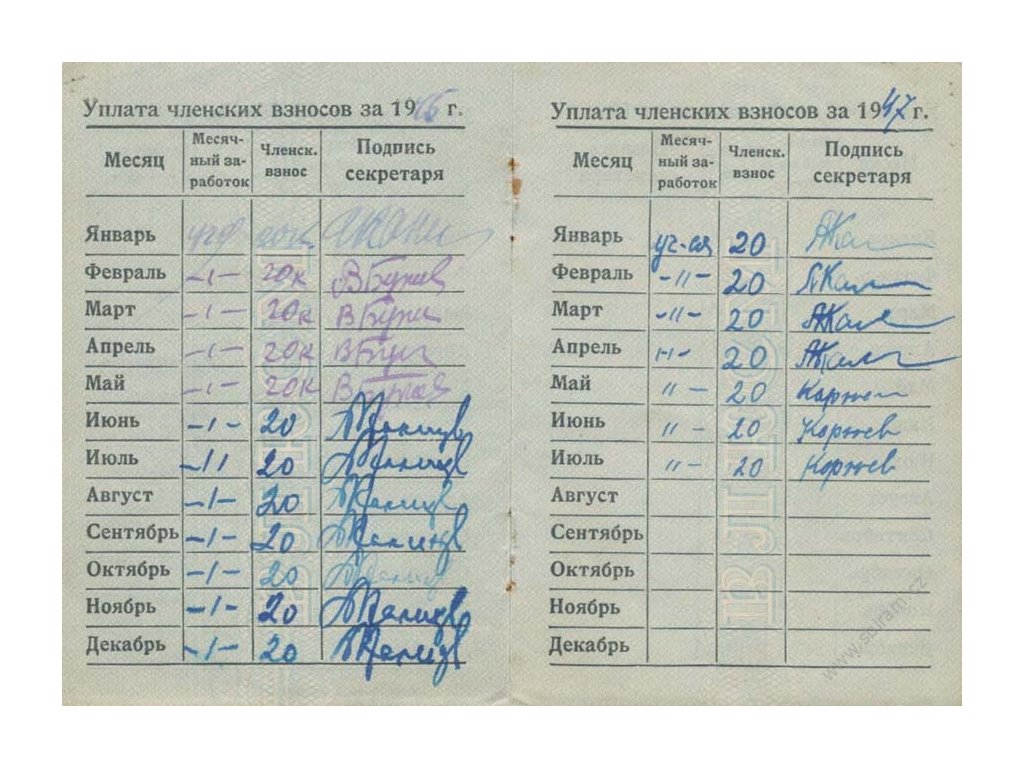 Уплата членских взносов за 1946 г.
Месяц Месяч-ный за-работок Членск. взнос Подпись секретаря
Январь 20к.
Февраль -ı- 20к В Бунев
Март -ı- 20к
Апрель -ı- 20к
Май -ı- 20к
Июнь -ı- 20
Июль -ıı 20
Август -ı- 20
Сентябрь -ı- 20
Октябрь -ı- 20
Ноябрь -ı- 20
Декабрь -ı- 20
Уплата членских взносов за 1947 г.
Месяц Месяч-ный за-работок Членск. взнос Подпись секретаря
Январь уч-ся 20
Февраль -"- 20
Март -"- 20
Апрель "- 20
Май "- 20
Июнь "- 20 Коржев
Июль "- 20 Коржев
Август
Сентябрь
Октябрь
Ноябрь
Декабрь
ВЛКСМ
ВЛКСМ